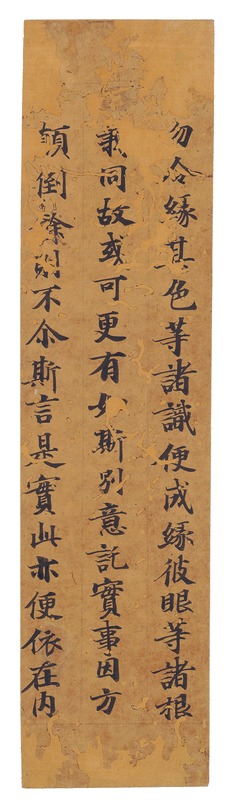 勿令緣其色等諸識便成緣彼眼等諸根
乘同故或可更有如斯別意託實事因方
顛倒餘則不尒斯言是實此亦便依在內